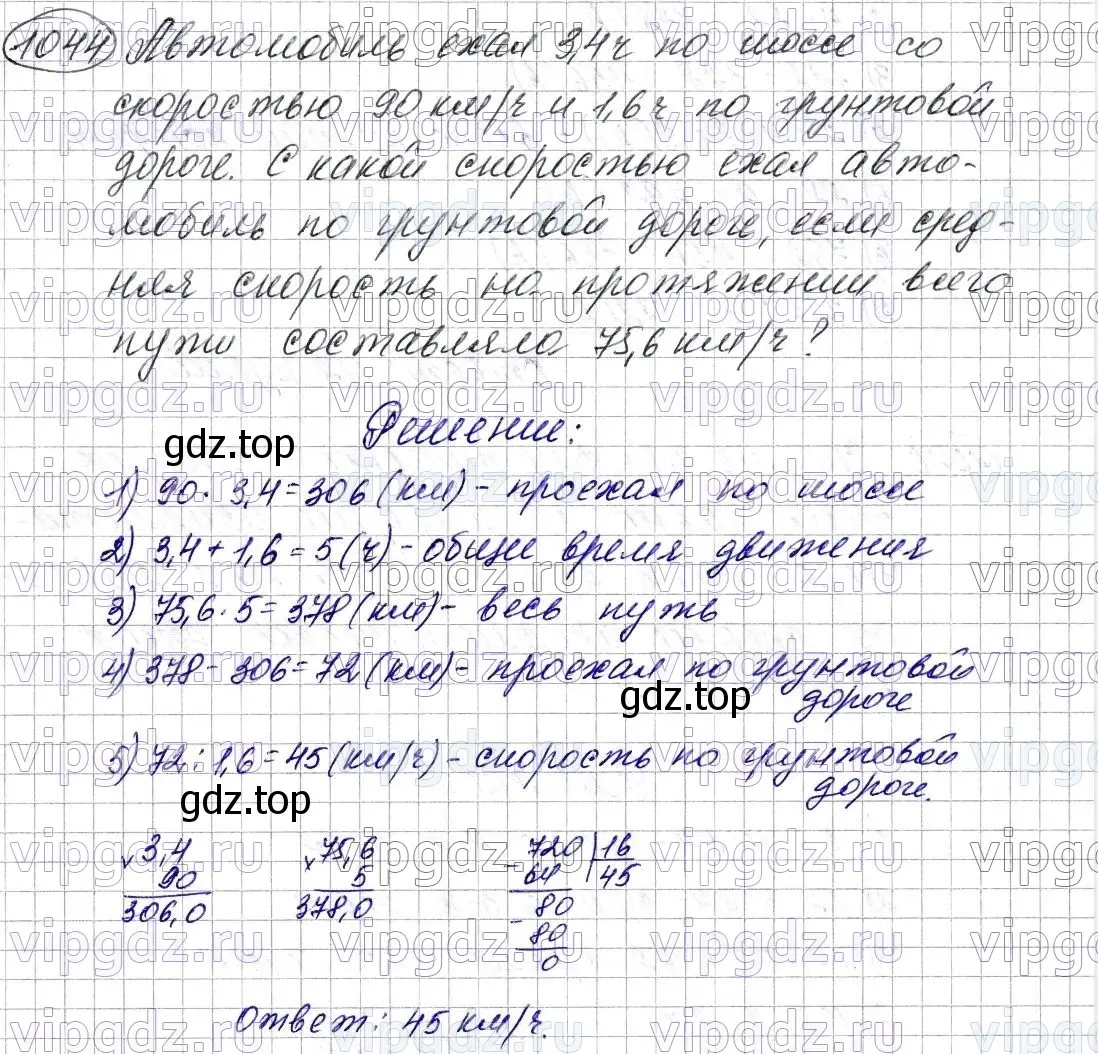 1044 Автомобиль ехал 3,4 ч по шоссе со
скоростью 90 км/ч и 1,6 ч по грунтовой
дороге. С какой скоростью ехал авто-
мобиль по грунтовой дороге, если сред-
няя скорость на протяжении всего
пути составляла 75,6 км/ч?
Решение:
gdz.top
1) 90 · 3,4 = 306 (км) - проехал по шоссе
2) 3,4 + 1,6 = 5 (ч) - общее время движения
3) 75,6 · 5 = 378 (км) - весь путь
4) 378 - 306 = 72 (км) - проехал по грунтовой
дороге
gdz.top
5) 72 : 1,6 = 45 (км/ч) - скорость по грунтовой
дороге.
gdz.top
× 3,4
90
306,0
× 75,6
5
378,0
- 720 | 16
64 45
80
- 80
0
Ответ: 45 км/ч.
vipgdz.ru